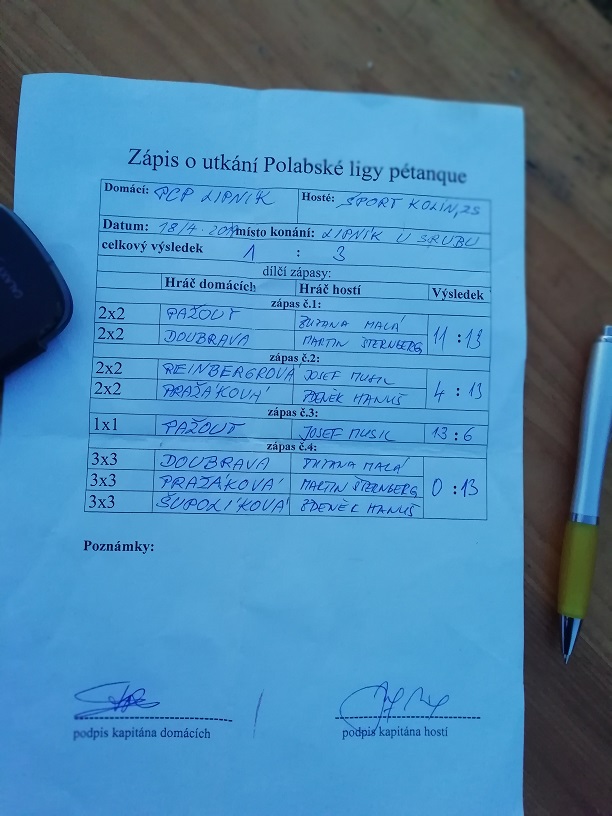 Zápis o utkání Polabské ligy pétanque
Domácí: PCP LIPNÍK Hosté: SPORT KOLÍN, ZS
Datum: 18/4. místo konání: LIPNÍK U SRUBU
celkový výsledek 1 : 3
dílčí zápasy:
Hráč domácích Hráč hostí Výsledek
zápas č.1:
2x2 PAŽOUT ZUZANA MALÁ 11 : 13
2x2 DOUBRAVA MARTIN ŠTERNBERG
zápas č.2:
2x2 REINBERGROVÁ JOSEF MUSIL 4 : 13
2x2 PRAŽÁKOVÁ ZDENĚK HANUŠ
zápas č.3:
1x1 PAŽOUT JOSEF MUSIL 13 : 6
zápas č.4:
3x3 DOUBRAVA ZUZANA MALÁ 0 : 13
3x3 PRAŽÁKOVÁ MARTIN ŠTERNBERG
3x3 ŠUPOLÍKOVÁ ZDENĚK HANUŠ
Poznámky:
podpis kapitána domácích podpis kapitána hostí